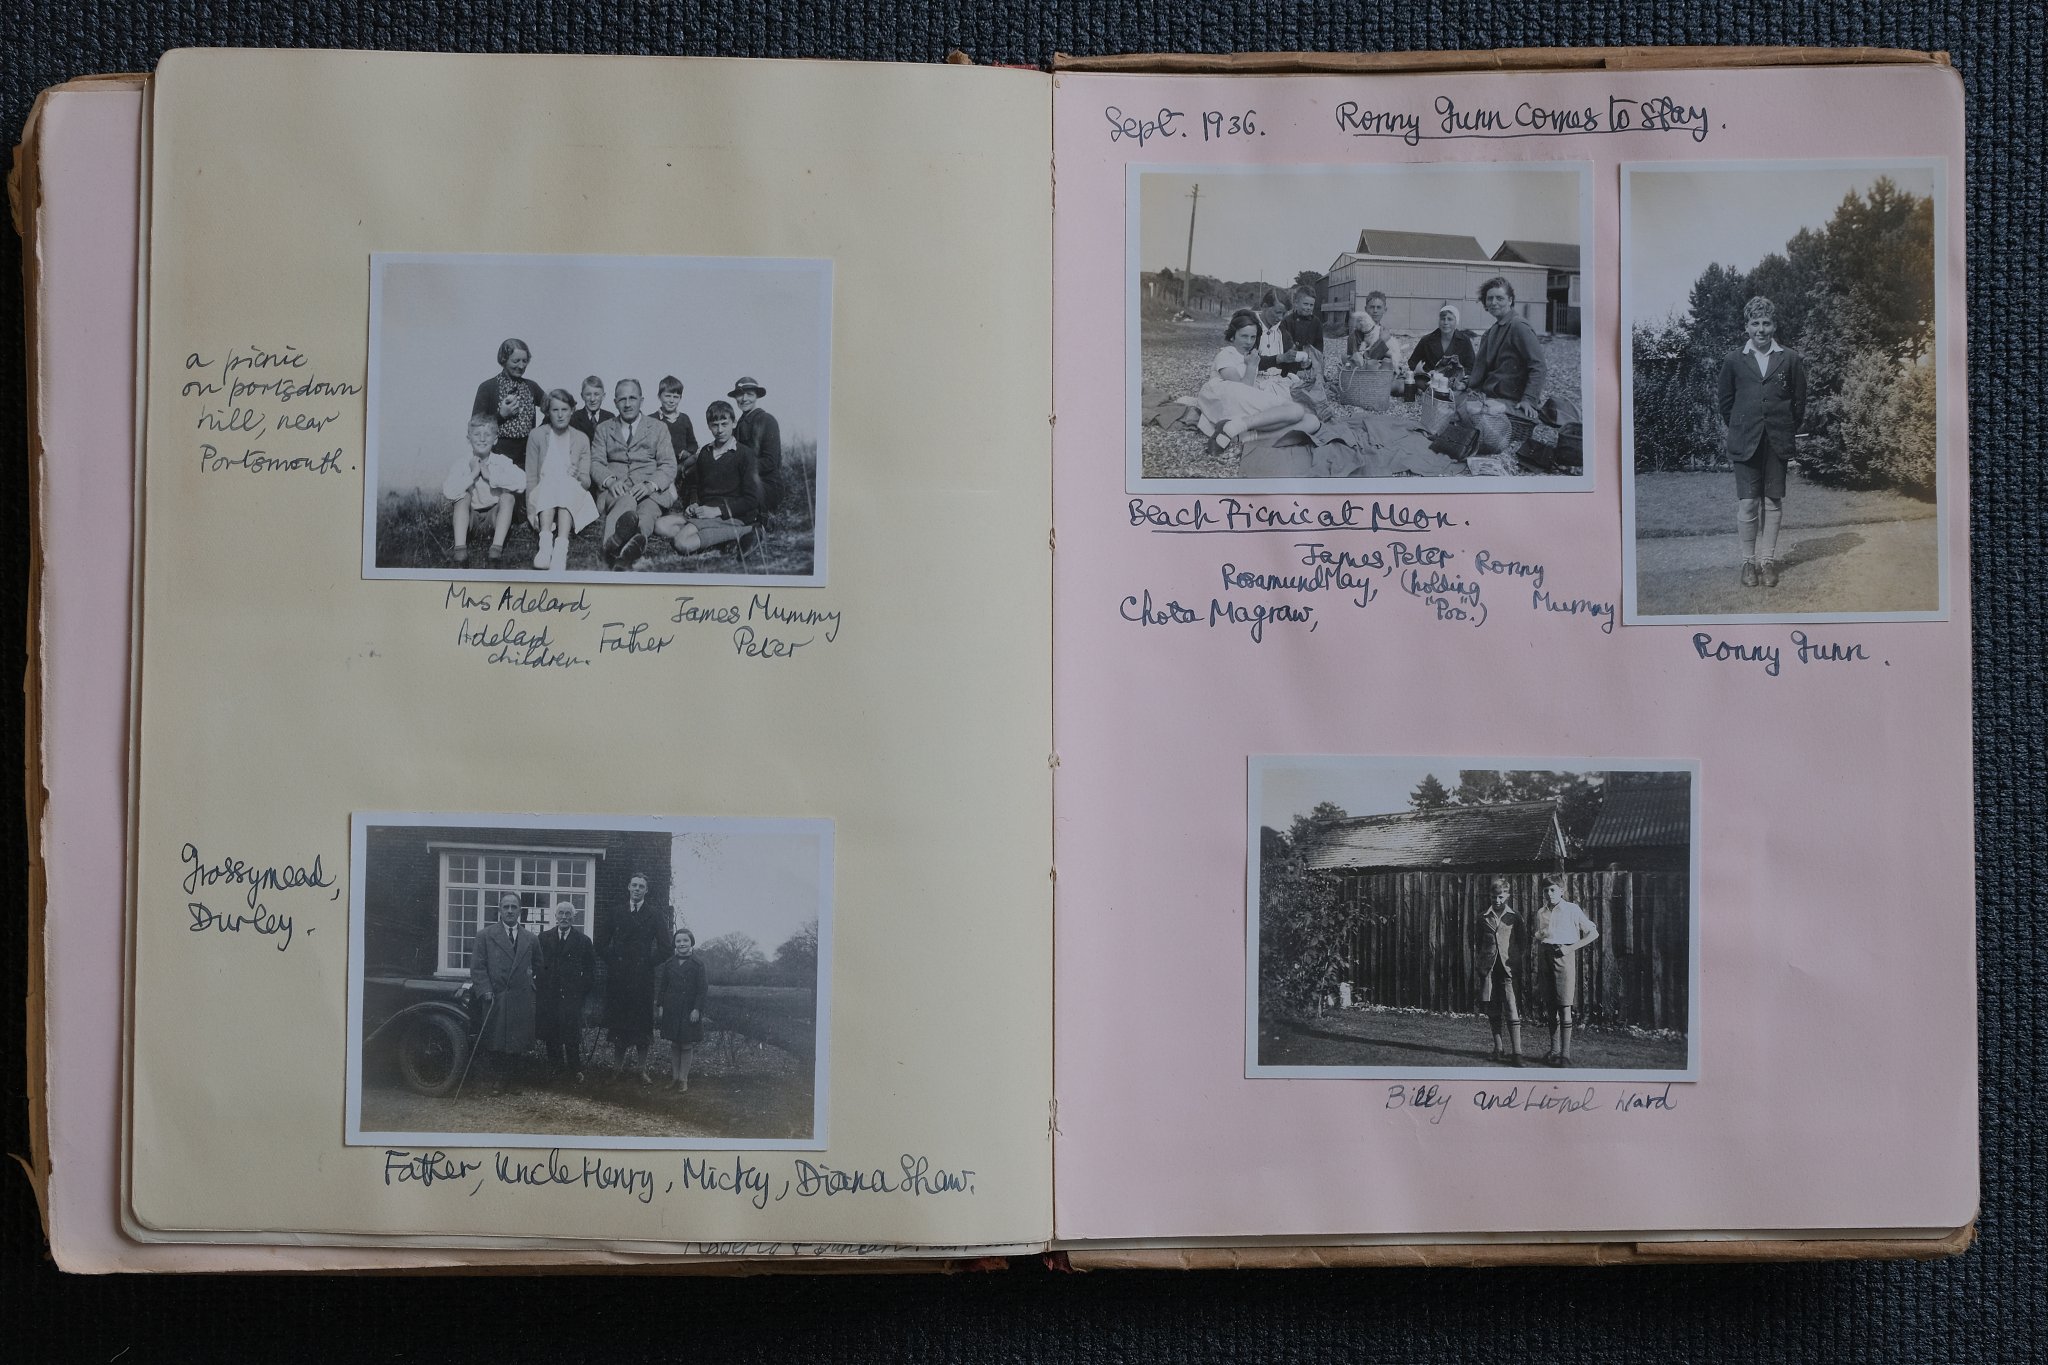 a picnic
on portsdown
hill, near
Portsmouth.
Mrs Adelard,
Adelard
children.
Father
James Mummy
Peter
Grossymead,
Durley.
Father, Uncle Henry, Micky, Diana Shaw.
Roberta + Duncan
Sept. 1936. Ronny Gunn Comes to Stay.
Beach Picnic at Meon.
James, Peter Ronny
Rosamund May, (holding
Chota Magraw, "Poo".) Mummy
Ronny Gunn.
Billy and Lionel Ward